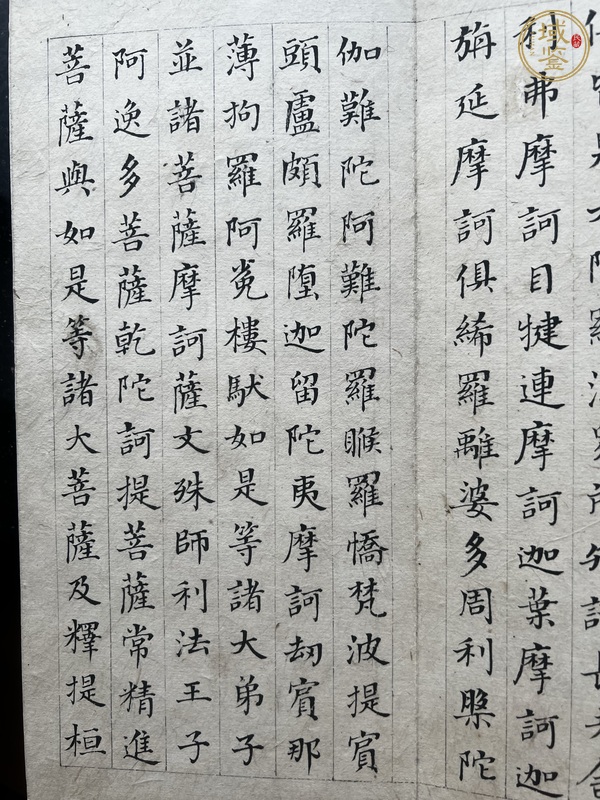 利弗摩訶目犍連摩訶迦葉摩訶迦
旃延摩訶俱絺羅離婆多周利槃陀
伽難陀阿難陀羅睺羅憍梵波提賓
頭盧頗羅墮迦留陀夷摩訶劫賓那
薄拘羅阿㝹樓馱如是等諸大弟子
並諸菩薩摩訶薩文殊師利法王子
阿逸多菩薩乾陀訶提菩薩常精進
菩薩與如是等諸大菩薩及釋提桓
域鑒